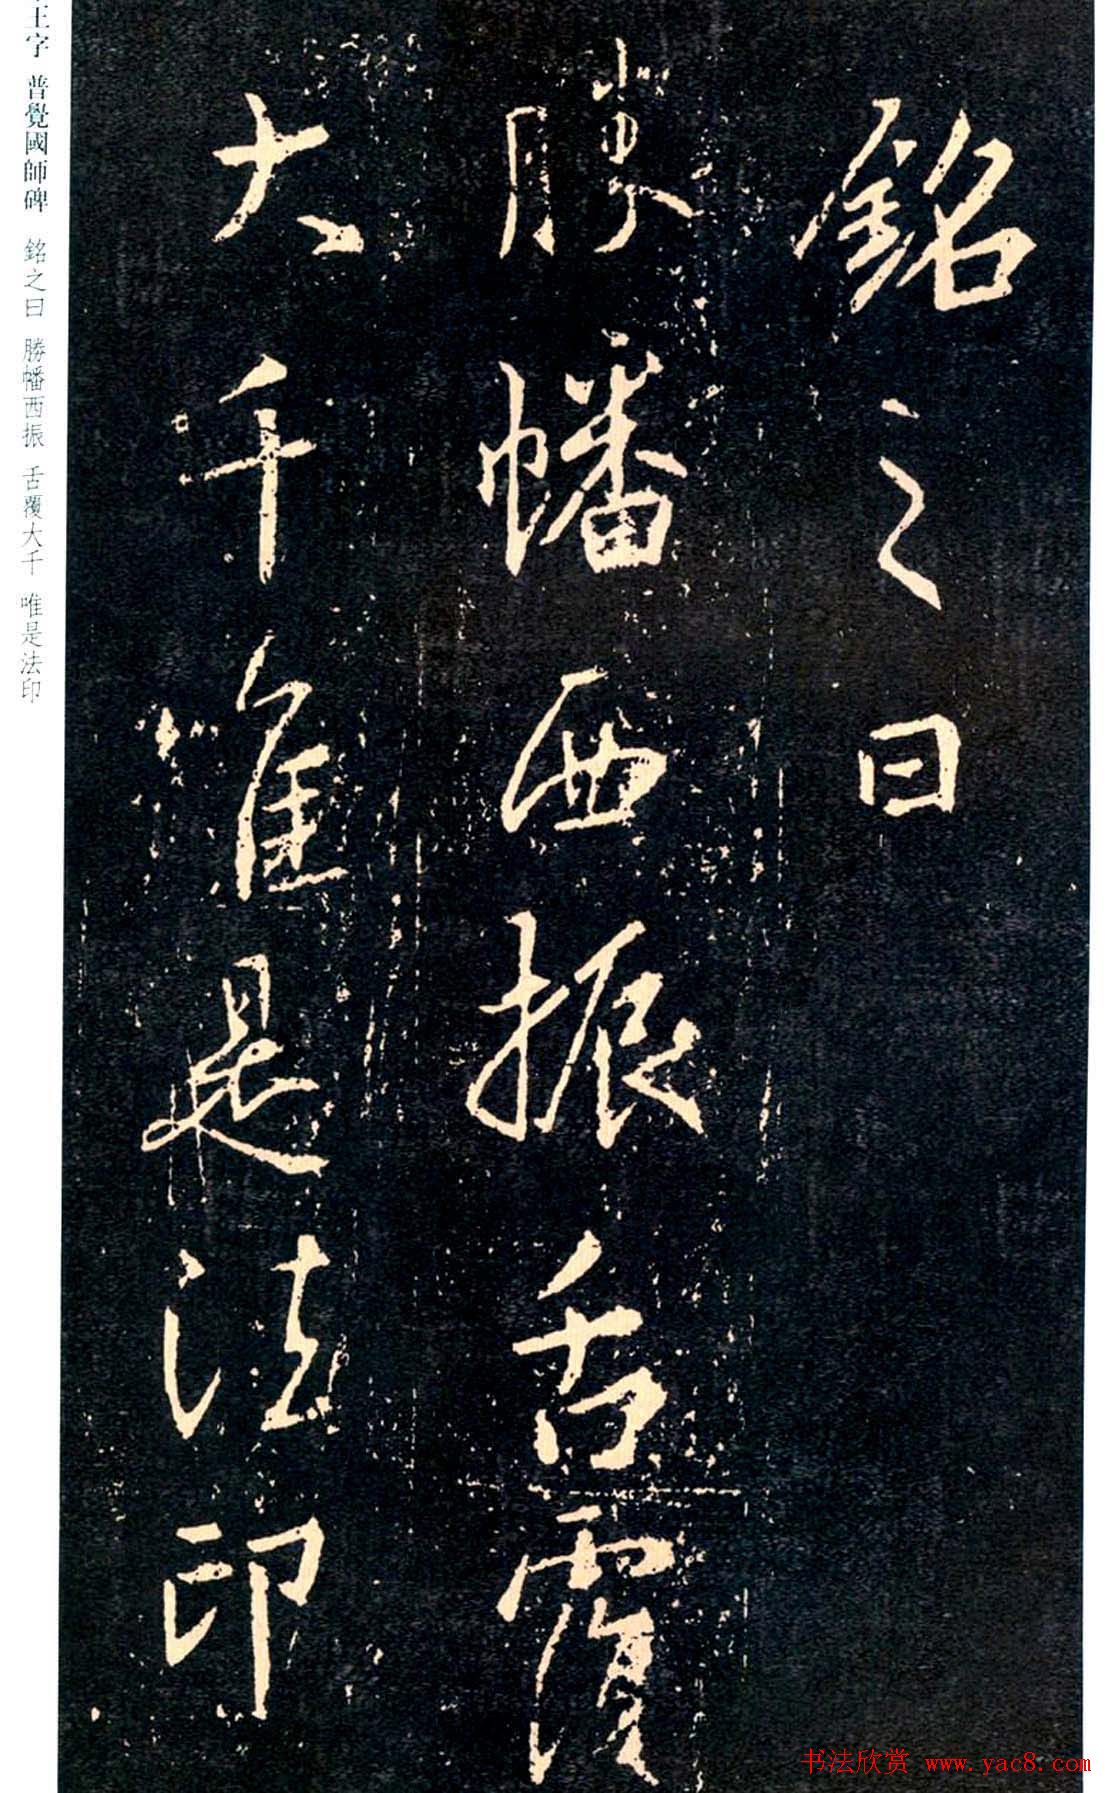 銘之曰
勝幡西振舌覆
大千唯是法印
王字 普覺國師碑 銘之曰 勝幡西振 舌覆大千 唯是法印
书法欣赏 www.yac8.com